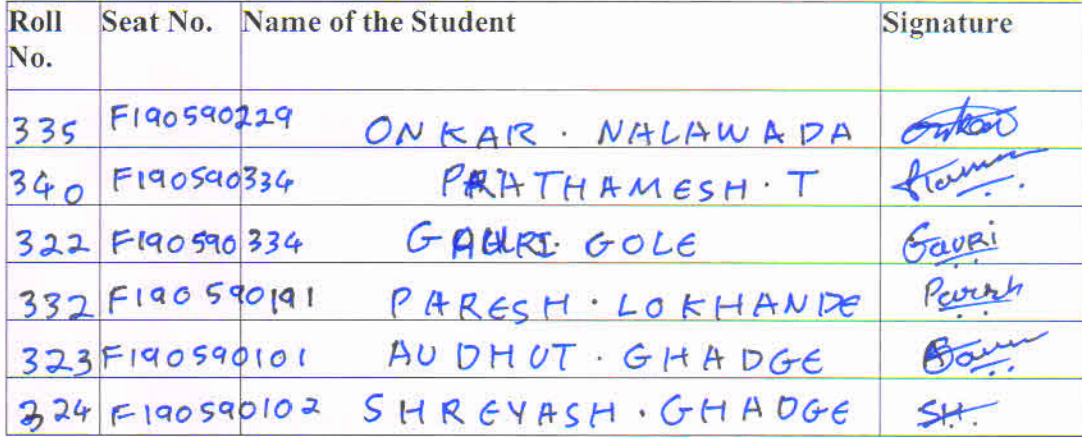 Roll No. Seat No. Name of the Student Signature
335 F190590229 ONKAR . NALAWADA Onkar
340 F190590334 PRATHAMESH . T
322 F190590334 GAURI . GOLE Gauri
332 F190590191 PARESH . LOKHANDE Paresh
323 F190590101 AUDHUT . GHADGE
324 F190590102 SHREYASH . GHADGE SH.